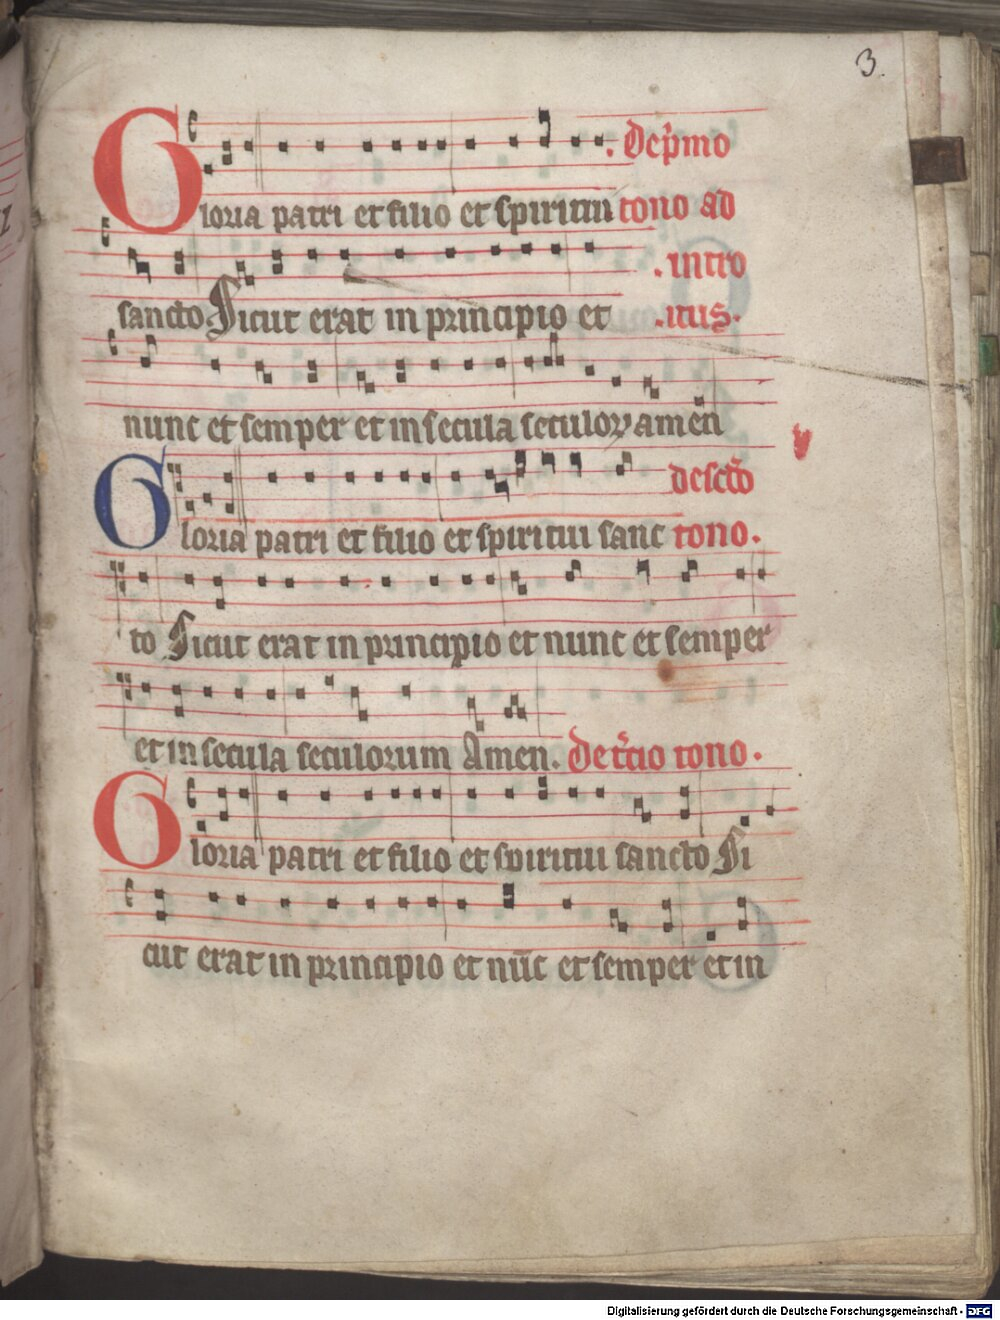 3.
Gloria patri et filio et spiritui De p̄mo
tono ad
sancto Sicut erat in principio et . intro
. itus .
nunc et semper et in secula seculoꝝ amen
Gloria patri et filio et spiritui sanc de scd̄o
tono .
to Sicut erat in principio et nunc et semper
et in secula seculorum Amen . De t̄cio tono .
Gloria patri et filio et spiritui sancto Si
cut erat in principio et nūc et semper et in
Digitalisierung gefördert durch die Deutsche Forschungsgemeinschaft - DFG